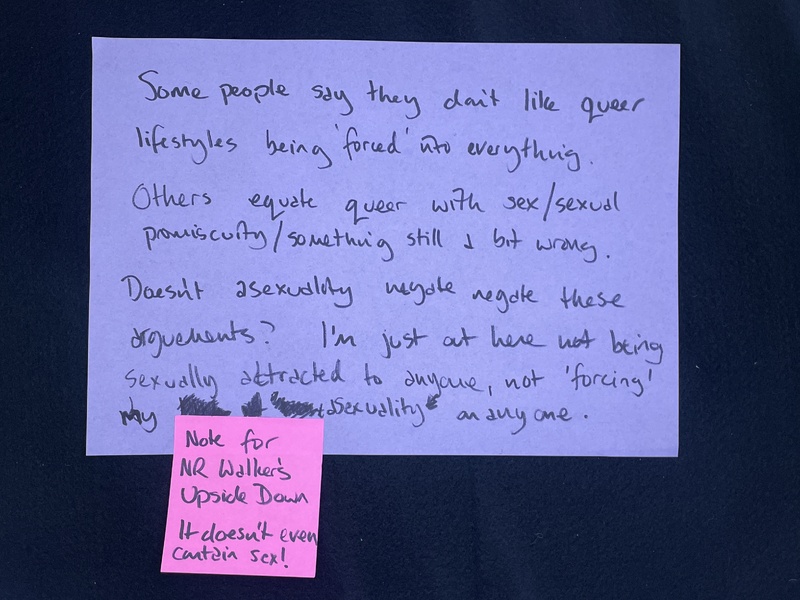 Some people say they don't like queer
lifestyles being 'forced' into everything.
Others equate queer with sex/sexual
promiscuity/something still a bit wrong.
Doesn't asexuality negate negate these
arguements? I'm just out here not being
sexually attracted to anyone, not 'forcing'
my asexuality" on anyone.
Note for
NR Walker's
Upside Down
It doesn't even
contain sex!